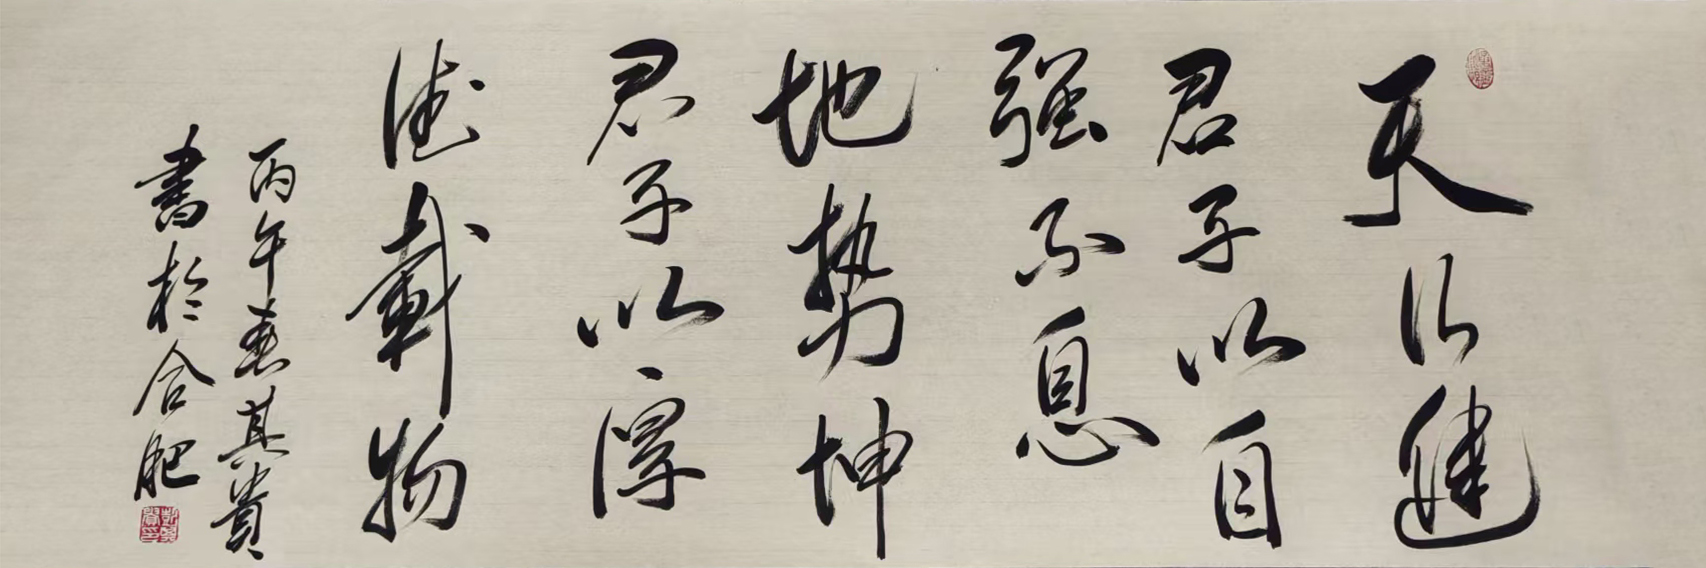 天行健
君子以自
强不息
地势坤
君子以厚
德载物
丙午春其贵
書於合肥